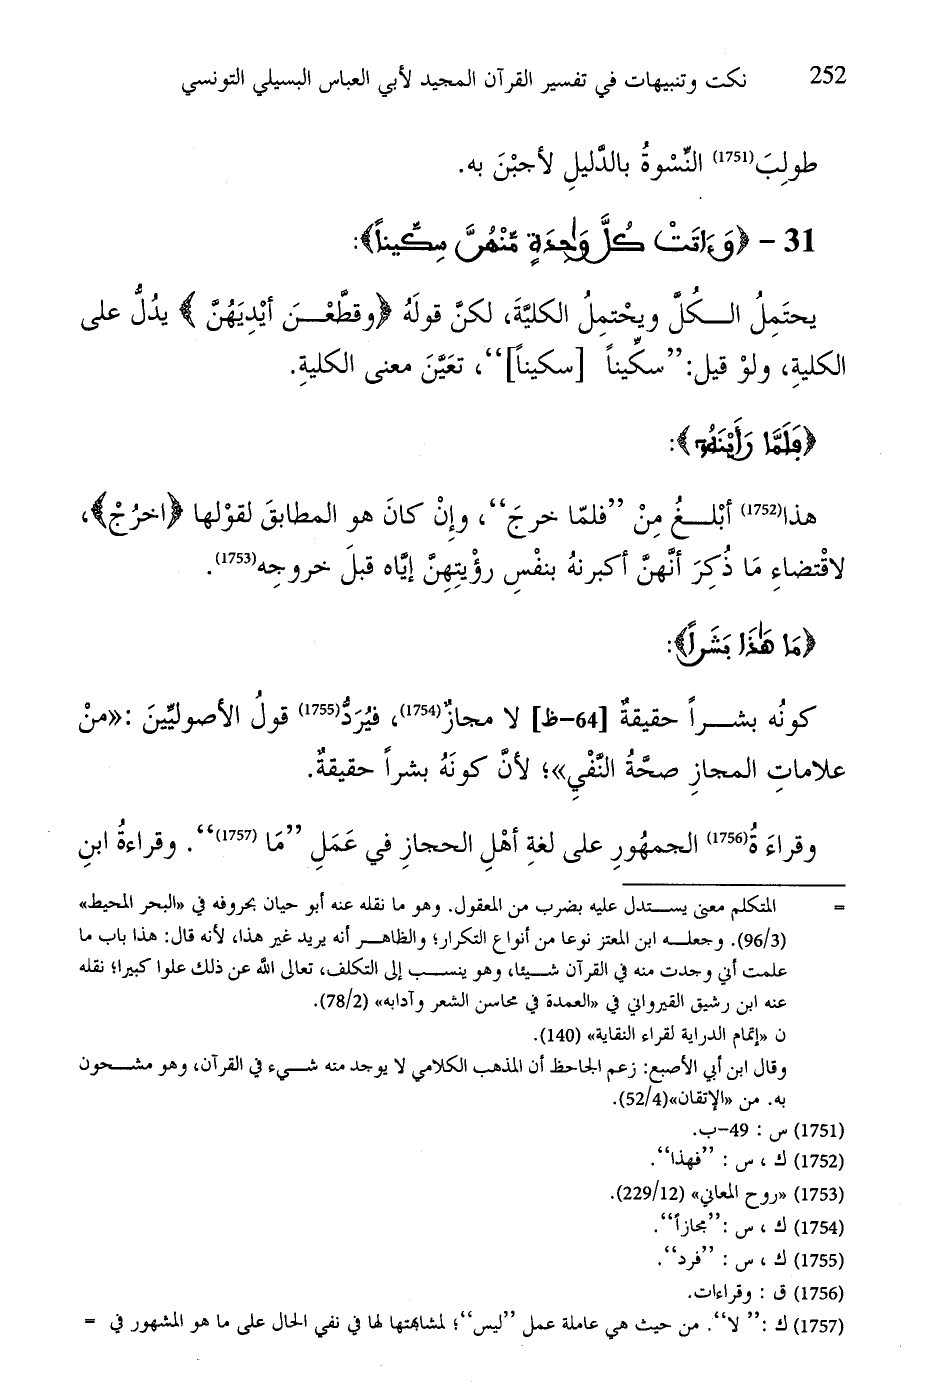 252 نكت وتنبيهات في تفسير القرآن المجيد لأبي العباس البسيلي التونسي
طولِبَ(1751) النِّسْوةُ بالدَّليلِ لأجبْنَ به.
31 - ﴿وَءَاتَتْ كُلَّ وَٰحِدَةٖ مِّنْهُنَّ سِكِّيناً﴾:
يحتَمِلُ الكُلَّ ويحْتمِلُ الكليَّةَ، لكنَّ قولَهُ ﴿وقطَّعْنَ أيْدِيَهُنَّ ﴾ يدُلُّ على
الكليةِ، ولوْ قيل:”سكِّيناً [سكيناً]“، تعَيَّنَ معنى الكليةِ.
﴿فَلَمَّا رَأَيْنَهُۥ﴾:
هذا(1752) أبْلغُ مِنْ ”فلمّا خرجَ“، وإنْ كانَ هو المطابقَ لقوْلها ﴿اخرُجْ﴾،
لاقْتضاءِ مَا ذُكِرَ أنَّهنَّ أكبرنهُ بنفْسِ رؤْيتِهِنَّ إيَّاه قبلَ خروجِه(1753).
﴿مَا هَٰذَا بَشَراً﴾:
كونُه بشراً حقيقةٌ [64-ظ] لا مجازٌ(1754)، فيُرَدُّ(1755) قولُ الأصوليِّينَ :«منْ
علاماتِ المجازِ صحَّةُ النَّفْي»؛ لأنَّ كونَهُ بشراً حقيقةٌ.
وقراءَةُ(1756) الجمهُورِ على لغةِ أهْلِ الحجازِ في عَمَلِ ”مَا (1757)“. وقراءةُ ابنِ
= المتكلم معنى يستدل عليه بضرب من المعقول. وهو ما نقله عنه أبو حيان بحروفه في «البحر المحيط»
(96/3). وجعله ابن المعتز نوعا من أنواع التكرار؛ والظاهر أنه يريد غير هذا، لأنه قال: هذا باب ما
علمت أني وجدت منه في القرآن شيئا، وهو ينسب إلى التكلف، تعالى الله عن ذلك علوا كبيرا؛ نقله
عنه ابن رشيق القيرواني في «العمدة في محاسن الشعر وآدابه» (78/2).
ن «إتمام الدراية لقراء النقاية» (140).
وقال ابن أبي الأصبع: زعم الجاحظ أن المذهب الكلامي لا يوجد منه شيء في القرآن، وهو مشحون
به. من «الإتقان»(52/4).
(1751) س : 49-ب.
(1752) ك ، س : ”فهذا“.
(1753) «روح المعاني» (229/12).
(1754) ك ، س :”مجازاً“.
(1755) ك ، س : ”فرد“.
(1756) ق : وقراءات.
(1757) ك :” لا“. من حيث هي عاملة عمل ”ليس“؛ لمشابهتها لها في نفي الحال على ما هو المشهور في =